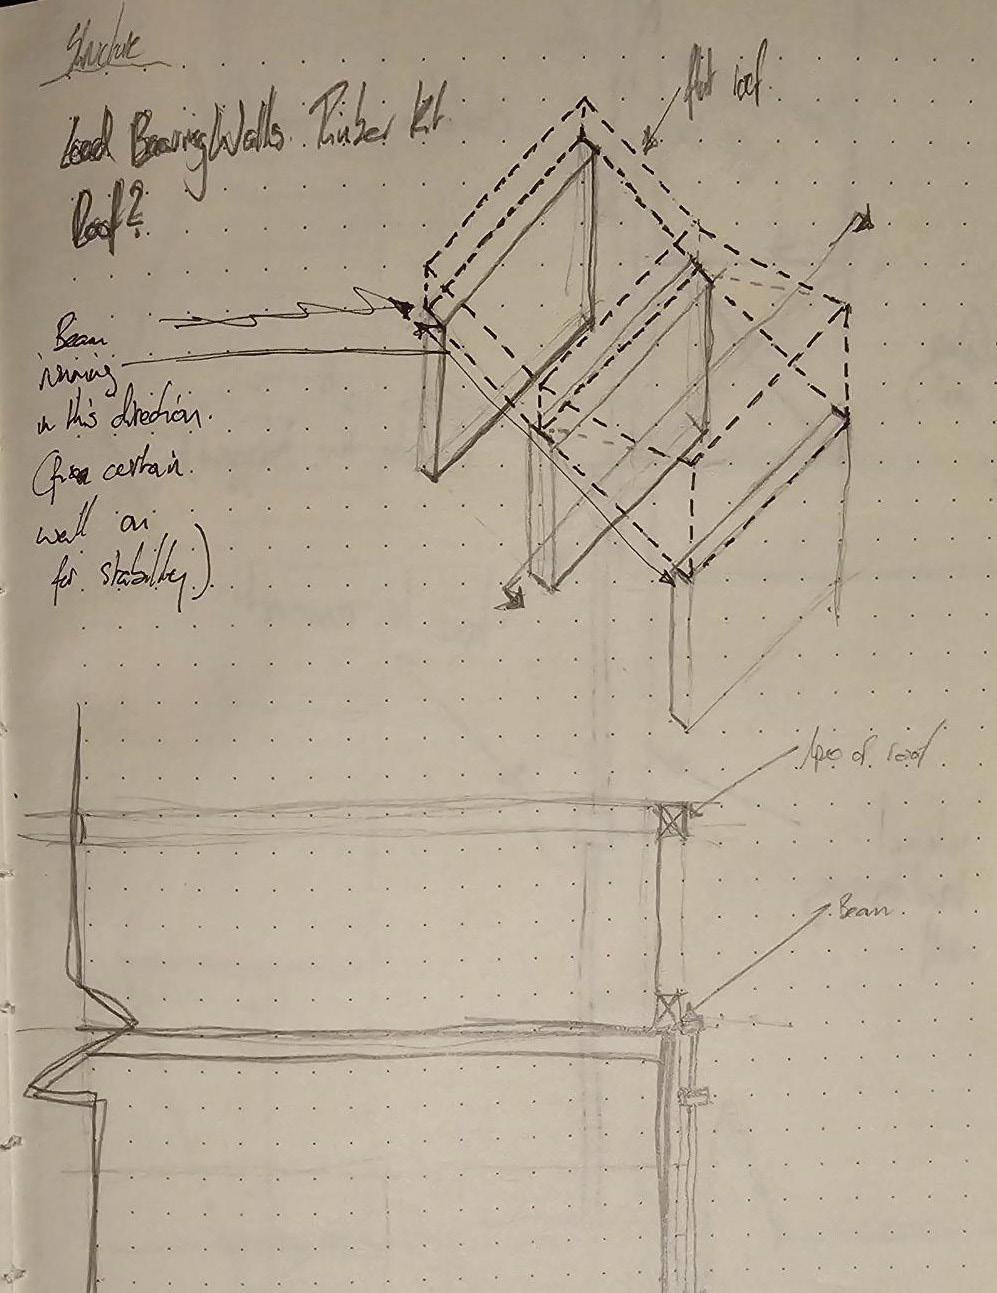 Structure
Load Bearing Walls. Timber Kit
Roof?
flat roof.
Beam
running
in this direction.
(from certain
wall on
for stability.)
of roof.
Beam.